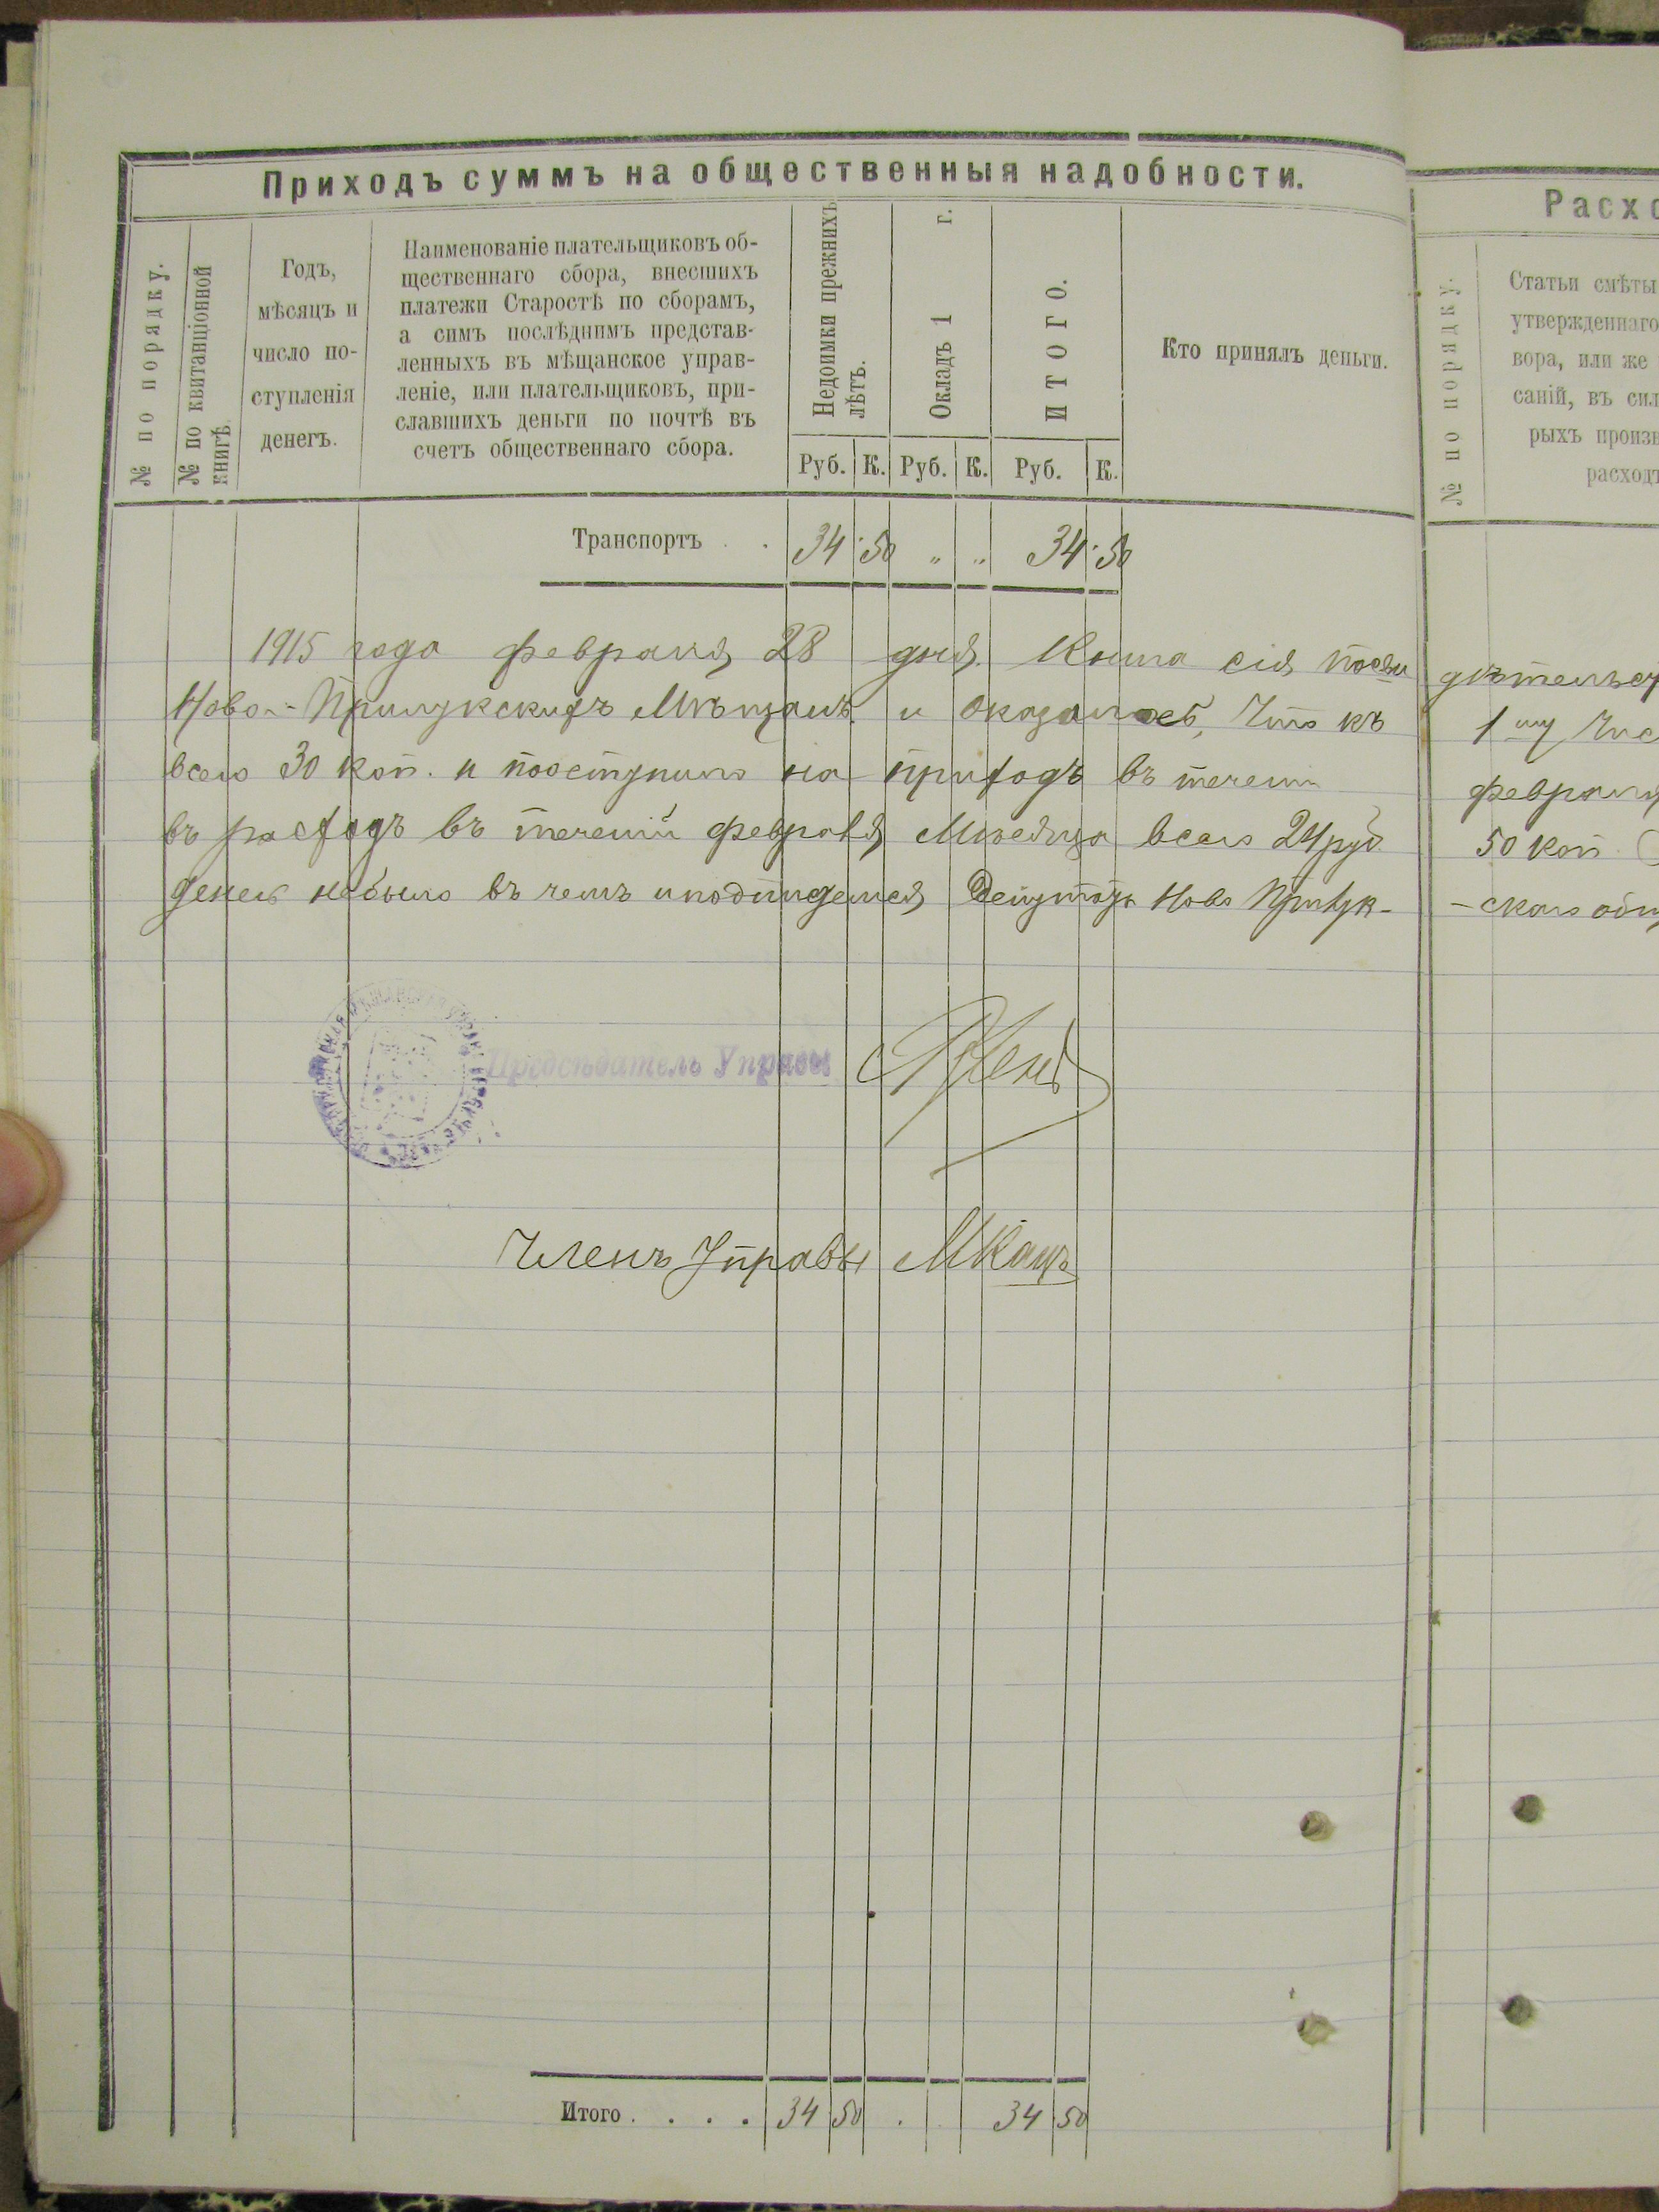 Приходъ суммъ на общественныя надобности.
№ по порядку.
№ по квитанціонной
книгѣ.
Годъ,
мѣсяцъ и
число по-
ступленія
денегъ.
Наименованіе плательщиковъ об-
щественнаго сбора, внесшихъ
платежи Старостѣ по сборамъ,
а симъ послѣднимъ представ-
ленныхъ въ мѣщанское управ-
леніе, или плательщиковъ, при-
славшихъ деньги по почтѣ въ
счетъ общественнаго сбора.
Недоимки прежнихъ
лѣтъ.
Окладъ 1 г.
ИТОГО.
Кто принялъ деньги.
Руб. К. Руб. К. Руб. К.
Транспортъ . . 34 50 „ „ 34 50
1915 года февраля 28 дня. Книга сія
Ново-Прилукскихъ Мѣщанъ и оказалось, что къ
всего 30 коп. и поступило на приходъ въ теченіи
въ расходъ въ теченіи февраля Мѣсяца всего 24 руб
денегъ небыло въ чемъ и подпишемся Депутаты Ново Прилук-
Предсѣдатель Управы
Членъ Управы МКацъ
Итого . . . . 34 50 . 34 50
Расхо
№ по порядку.
Статьи смѣты
утвержденнаго
вора, или же
саній, въ сил
рыхъ произв
расходъ
1 му Чис
февраля
50 коп.
-скаго общ